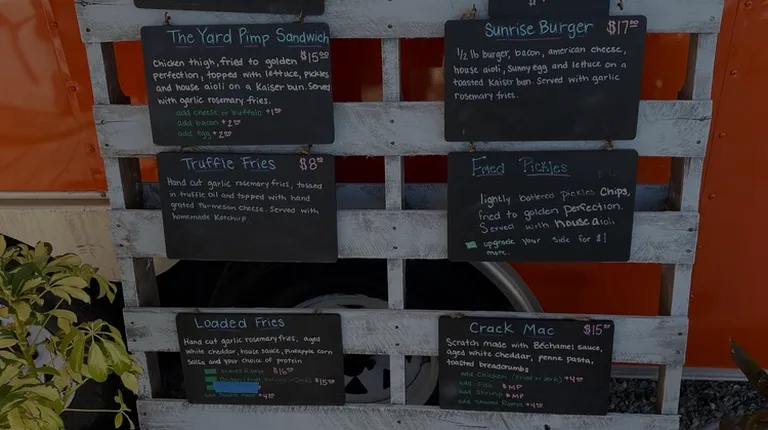 The Yard Pimp Sandwich
$15.00
Chicken thigh, fried to golden
perfection, topped with lettuce, pickles
and house aioli on a Kaiser bun. Served
with garlic rosemary fries.
add cheese or buffalo +1.00
add bacon +2.00
add egg +2.00
Sunrise Burger
$17.00
1/2 lb burger, bacon, american cheese,
house aioli, sunny egg and lettuce on a
toasted Kaiser bun. Served with garlic
rosemary fries.
Truffle Fries
$8.00
Hand cut garlic rosemary fries, tossed
in truffle oil and topped with hand
grated Parmesan cheese. Served with
homemade Ketchup
Fried Pickles
lightly battered pickles chips,
fried to golden perfection.
Served with house aioli.
upgrade your side for $1
more.
Loaded Fries
Hand cut garlic rosemary fries, aged
white cheddar, house sauce, pineapple corn
salsa and your choice of protein
$16.00
$15.00
Crack Mac
$15.00
Scratch made with Béchamel sauce,
aged white cheddar, penne pasta,
toasted breadcrumbs
add Chicken
+4.00
add Fish $ MP
add Shrimp $ MP
add Shaved Ribeye +4.00